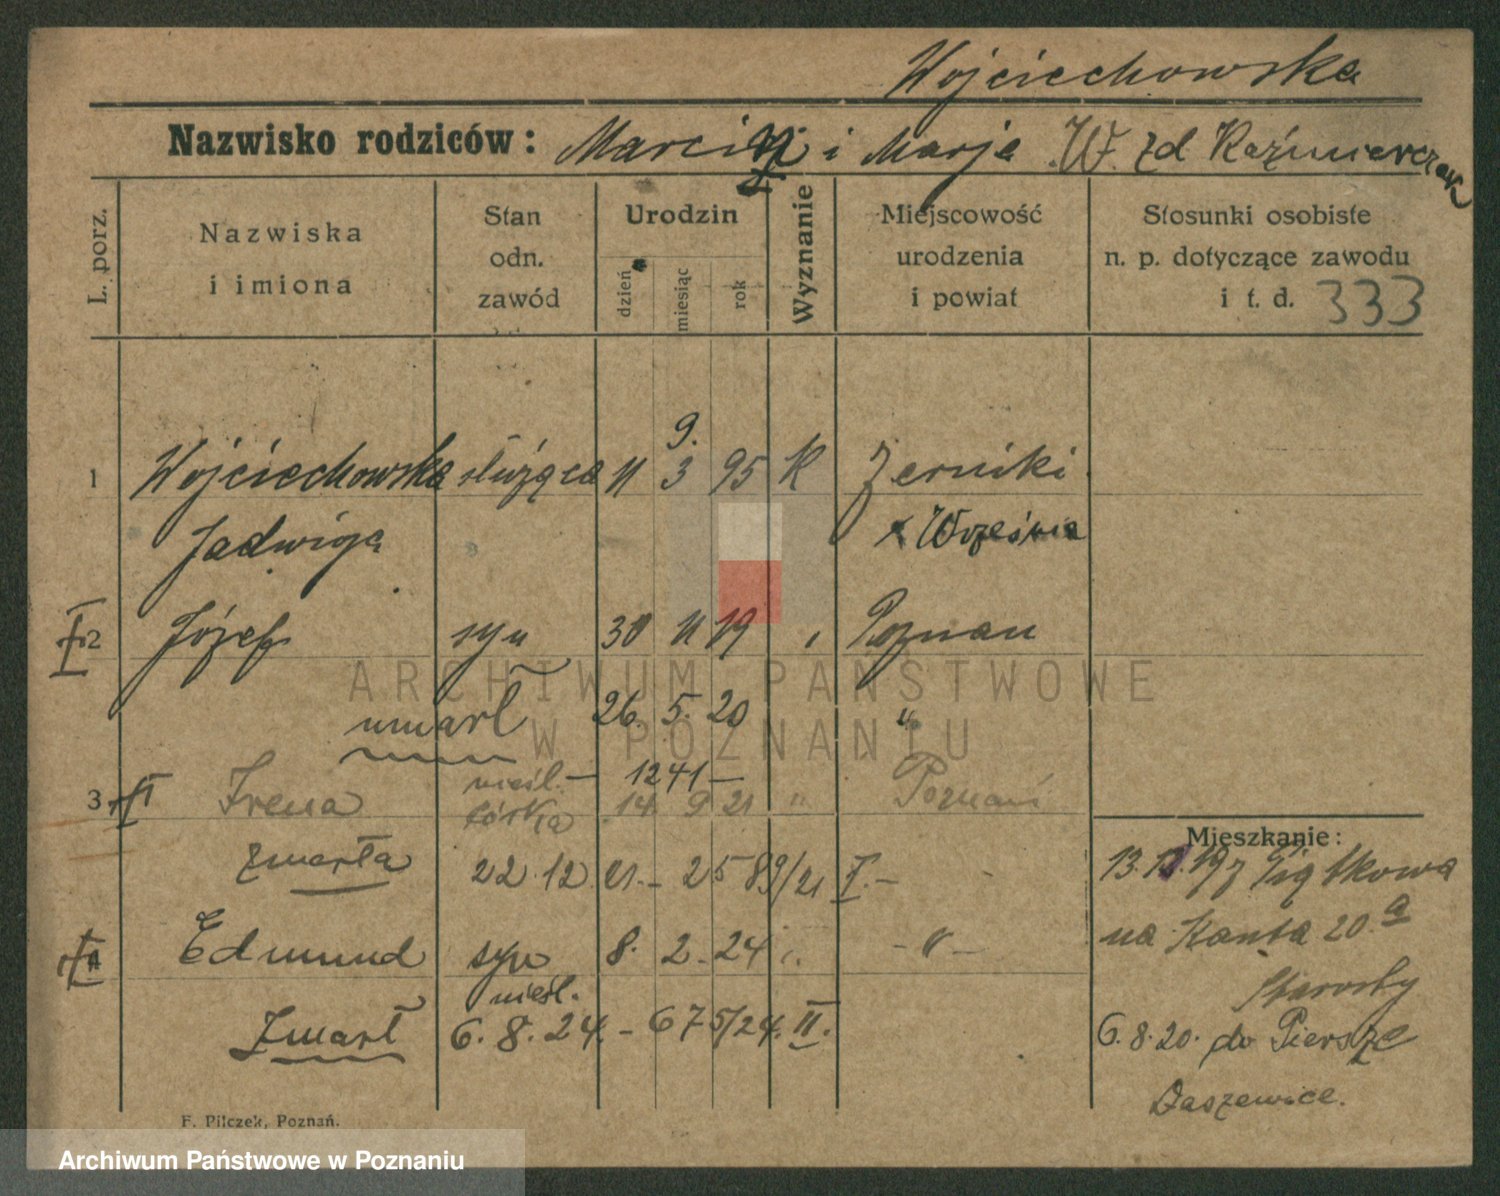 Wojciechowska
Nazwisko rodziców: Marcin i Marja W. zd Kaźmierczak
L. porz.
Nazwiska i imiona
Stan odn. zawód
Urodzin
dzień
miesiąc
rok
Wyznanie
Miejscowość urodzenia i powiat
Stosunki osobiste n. p. dotyczące zawodu i t. d. 333
9.
1 Wojciechowska służąca 11 3 95 K Zerniki
Jadwiga x Września
I 2 Józef syn 30 11 19 " Poznań
umarł 26. 5. 20 "
nieśl. — 1241 —
3 II Irena córka 14 9 21 " Poznań
zmarła 22.12.21. — 2589/21 I. —
4 Edmund syn 8. 2. 24 " — " —
nieśl.
Zmarł 6.8.24. — 675/24. II.
Mieszkanie:
13. 19 z Piątkowa
na Kanta 20.a
Starosty
6.8.20. do Piersze
Daszewice.
F. Pilczek, Poznań.
ARCHIWUM PAŃSTWOWE
W POZNANIU
Archiwum Państwowe w Poznaniu